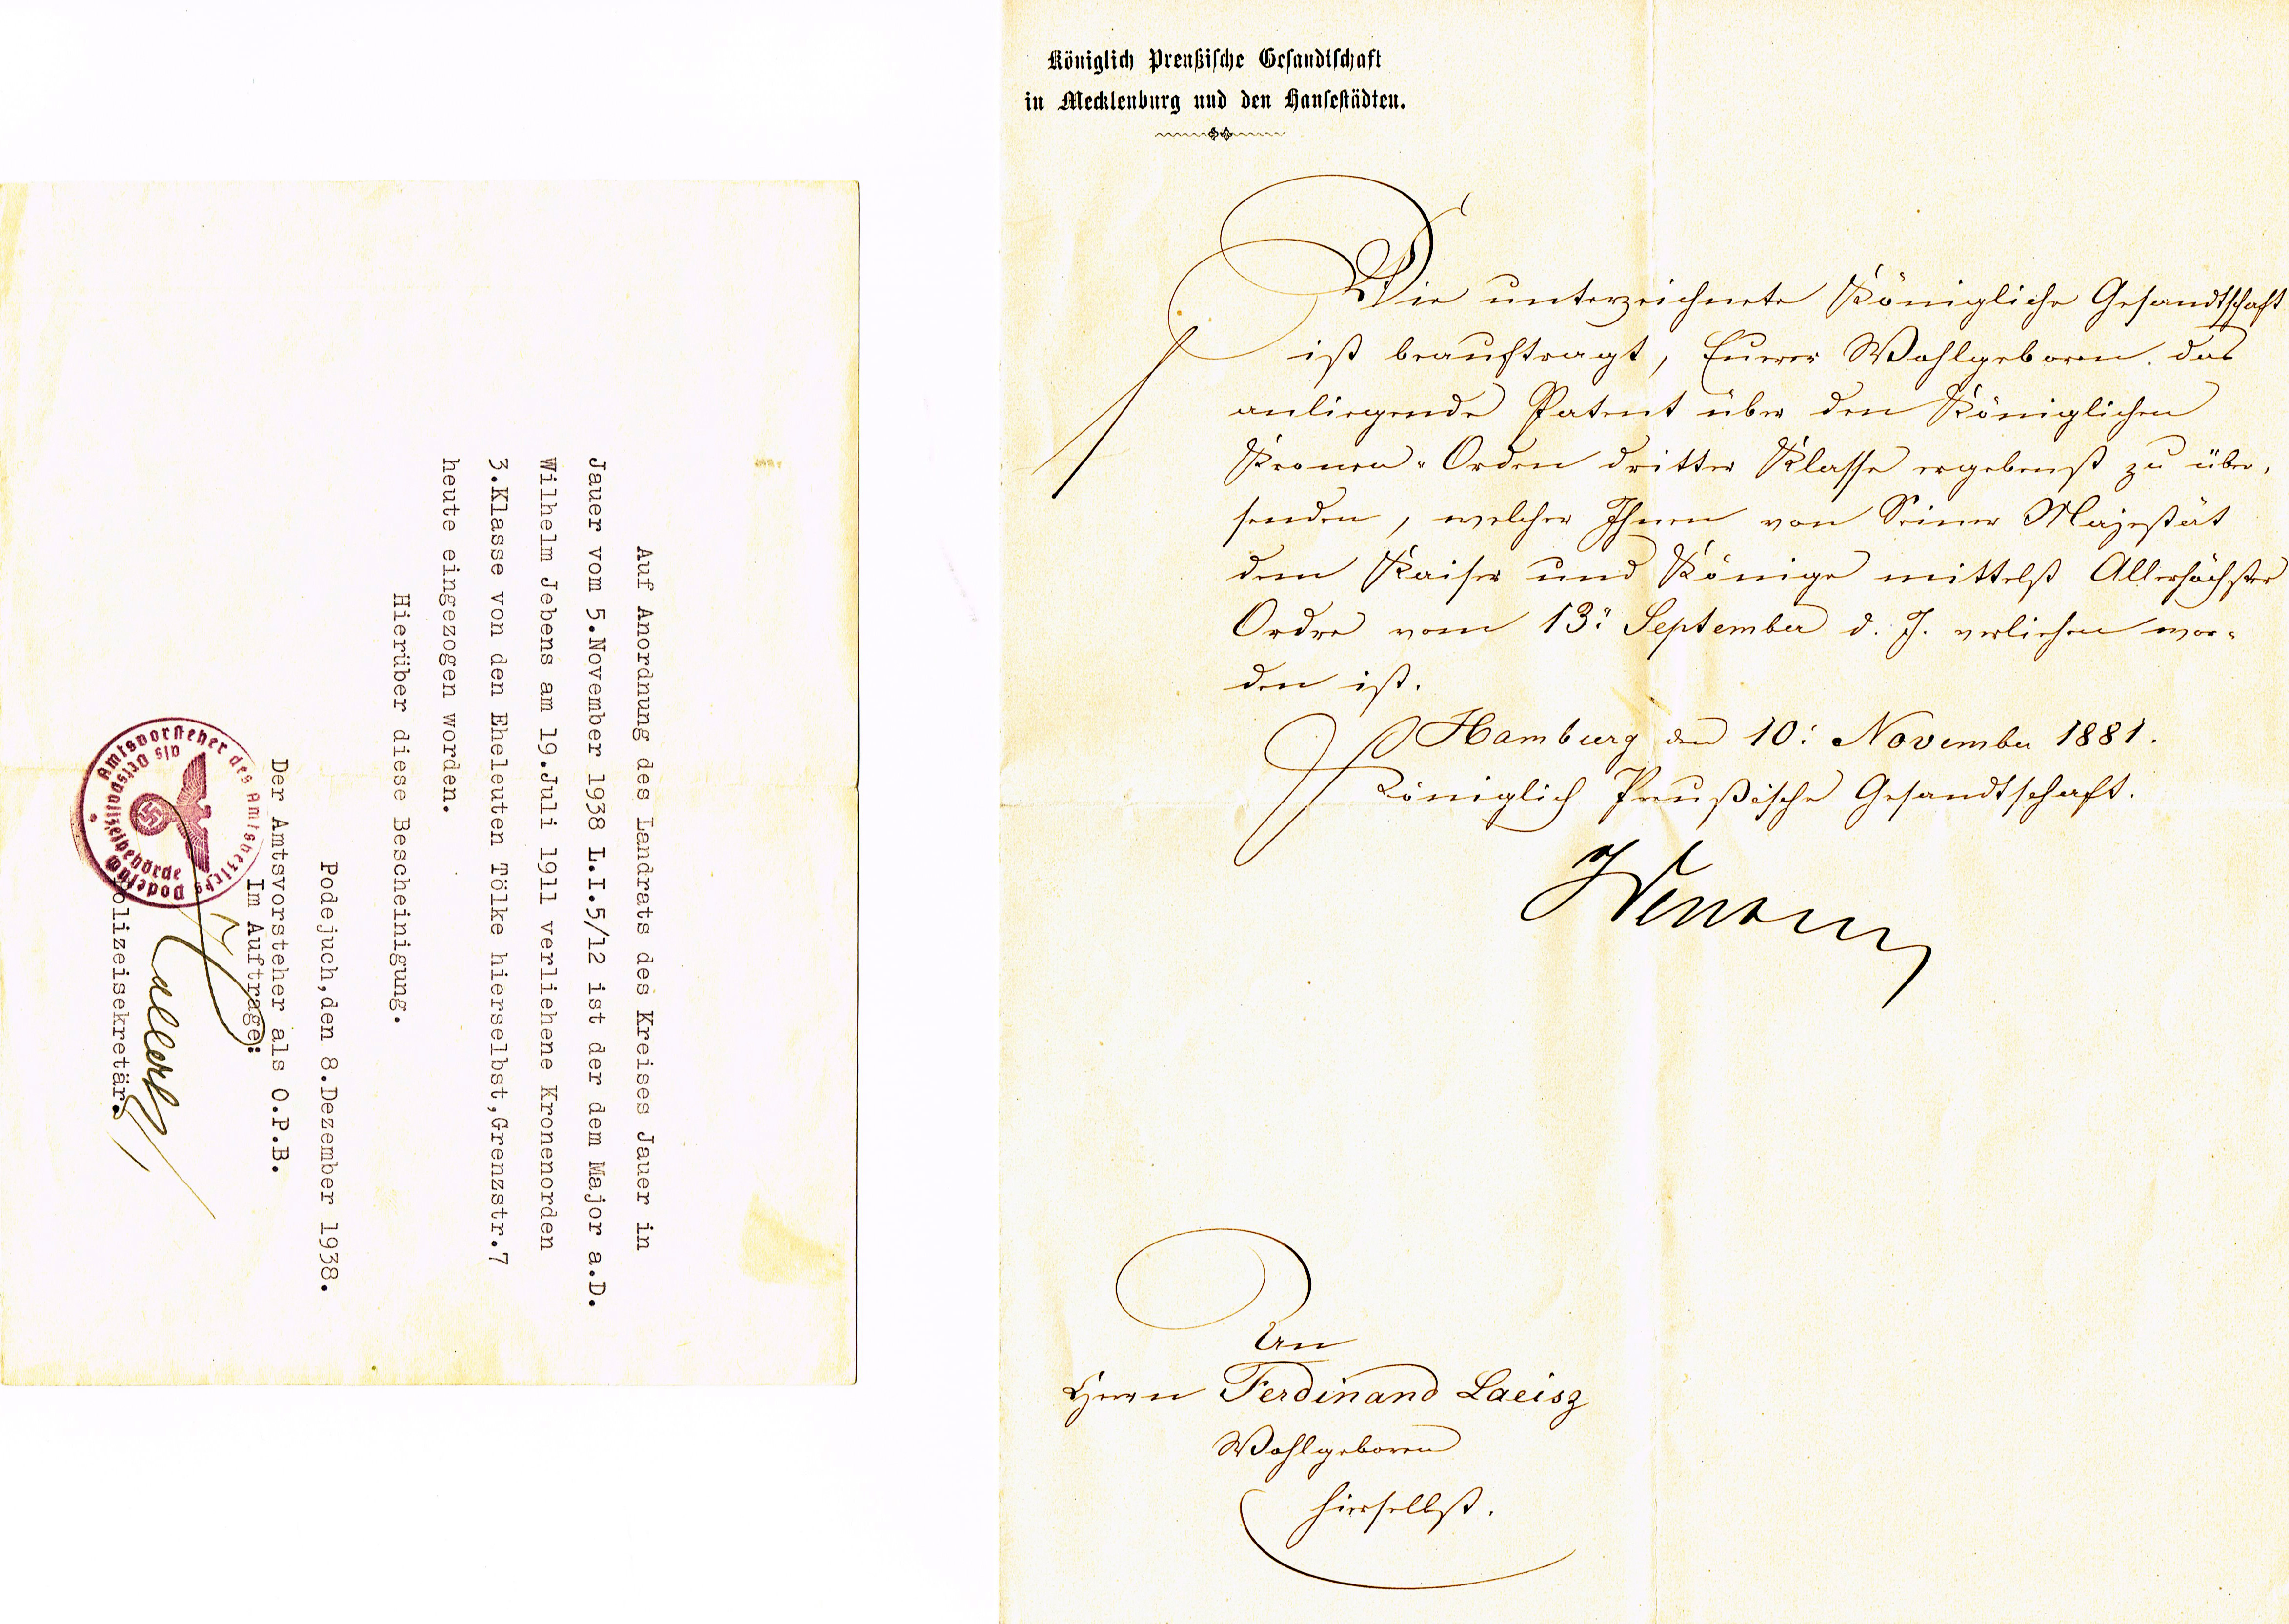 Auf Anordnung des Landrats des Kreises Jauer in
Jauer vom 5.November 1938 L.I.5/12 ist der dem Major a.D.
Wilhelm Jebens am 19.Juli 1911 verliehene Kronenorden
3.Klasse von den Eheleuten Tölke hierselbst,Grenzstr.7
heute eingezogen worden.
Hierüber diese Bescheinigung.
Podejuch,den 8.Dezember 1938.
Der Amtsvorsteher als O.P.B.
Im Auftrage:
Polizeisekretär.
Amtsvorsteher des Amtsbezirks Podejuch
als Ortspolizeibehörde
Königlich Preußische Gesandtschaft
in Mecklenburg und den Hansestädten.
Die unterzeichnete Königliche Gesandtschaft
ist beauftragt, Euerer Wohlgeboren das
anliegende Patent über den Königlichen
Kronen-Orden dritter Klasse ergebenst zu über-
senden, welcher Ihnen von Seiner Majestät
dem Kaiser und Könige mittelst Allerhöchster
Ordre vom 13: September d. J. verliehen wor-
den ist.
Hamburg den 10: November 1881.
Königlich Preußische Gesandtschaft.
An
Herrn Ferdinand Laeisz
Wohlgeboren
hierselbst.